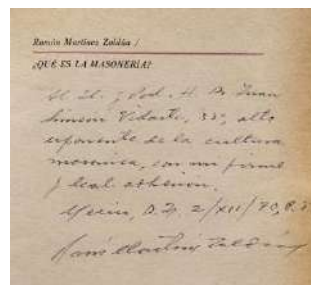 Ramón Martínez Zaldúa /
¿QUÉ ES LA MASONERÍA?
Al Il. y Pod. H. Dr. Juan
Simeón Vidarte, 33º, alto
exponente de la cultura
masónica, con mi firme
y leal adhesión.
México, D.F. 2/XII/70, e.v.
Ramón Martínez Zaldúa